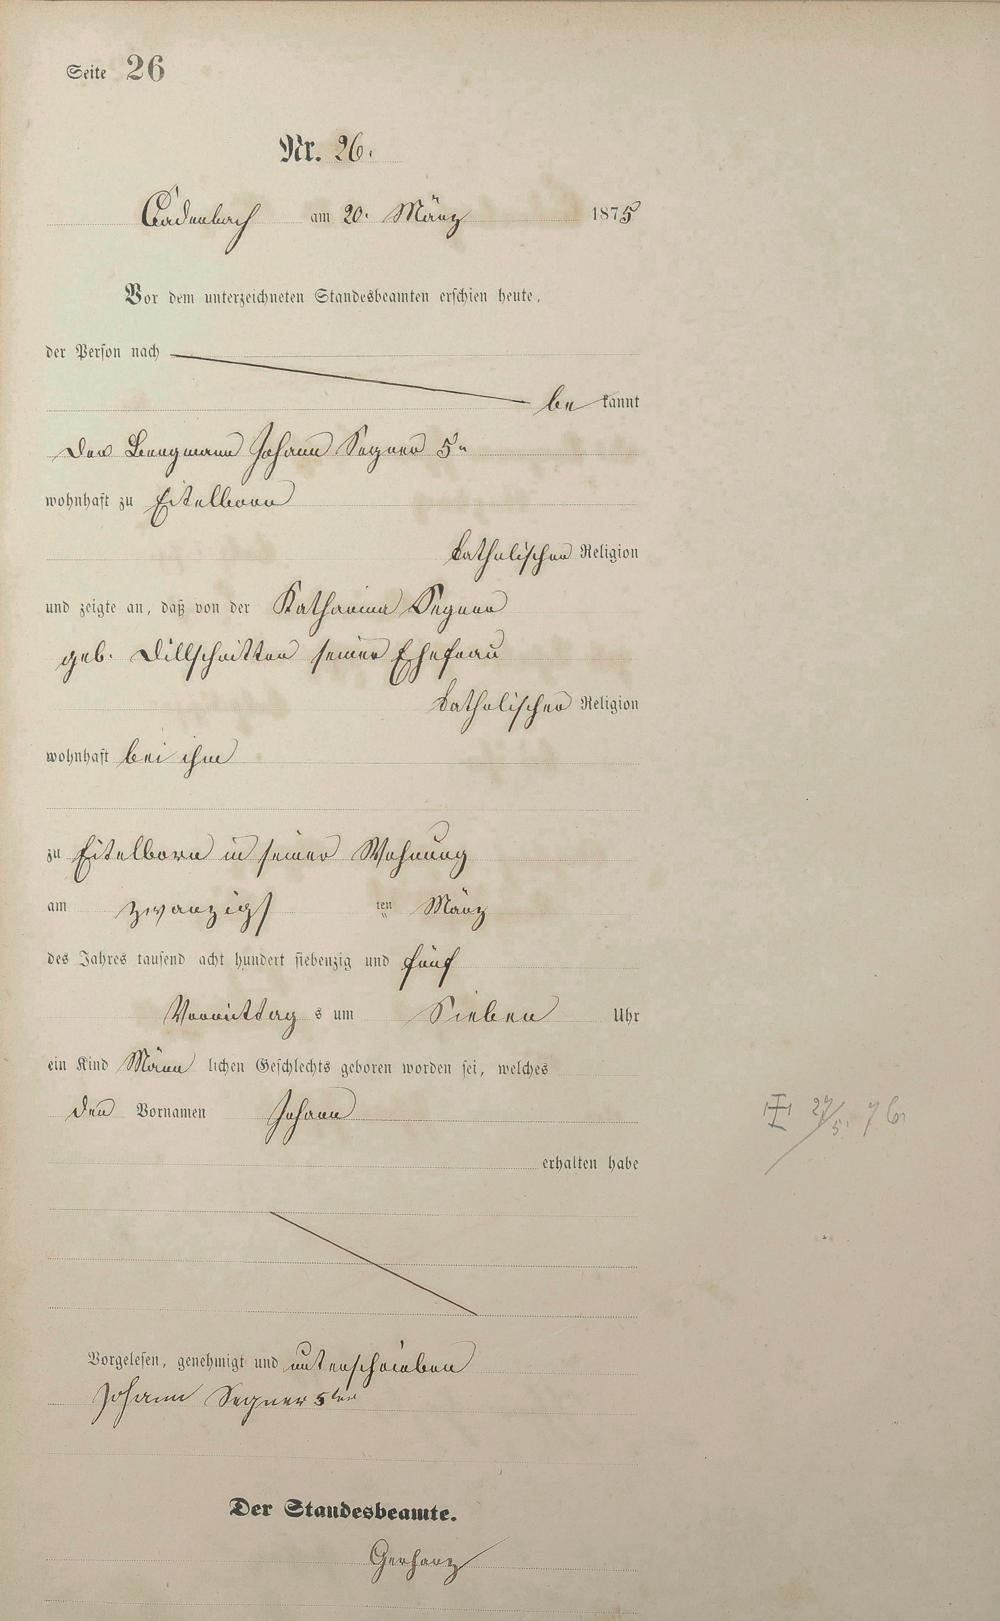 Seite 26
Nr. 26.
Cadenbach am 20. März 1875
Vor dem unterzeichneten Standesbeamten erschien heute,
der Person nach
be kannt
Der Bergmann Johann Segner 5r
wohnhaft zu Eitelborn
katholischer Religion
und zeigte an, daß von der Katharina Segner
geb. Dillschnitter seiner Ehefrau
katholischer Religion
wohnhaft bei ihm
zu Eitelborn in seiner Wohnung
am zwanzigs ten März
des Jahres tausend acht hundert siebenzig und fünf
Vormittag s um Sieben Uhr
ein Kind Männ lichen Geschlechts geboren worden sei, welches
den Vornamen Johann
27/5. 76.
erhalten habe
Vorgelesen, genehmigt und unterschrieben
Johann Segner 5ter
Der Standesbeamte.
Gerharz